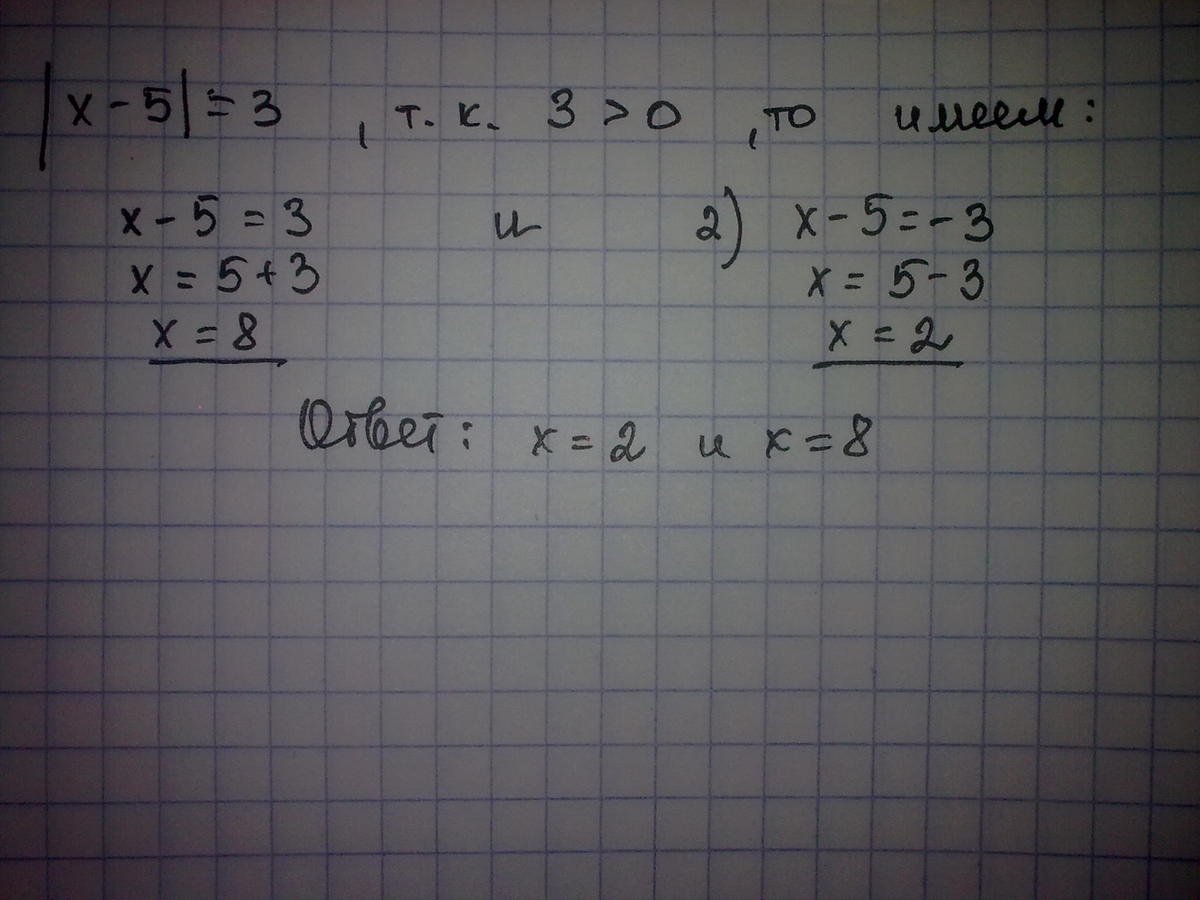 |x-5|=3, т. к. 3>0, то имеем:
x-5=3 и 2) x-5=-3
x=5+3 x=5-3
x=8 x=2
Ответ: x=2 и x=8